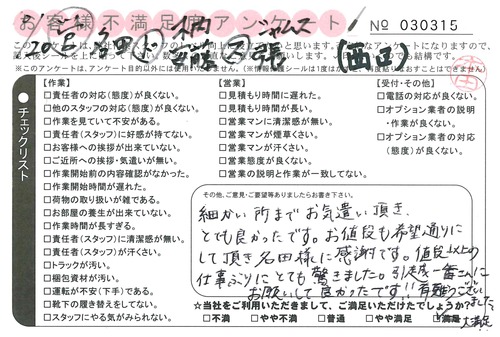 お客様不満足度アンケート
No 030315
(西口)
チェックリスト
【作業】
□責任者の対応(態度)が良くない。
□他のスタッフの対応(態度)が良くない。
□作業を見ていて不安がある。
□責任者(スタッフ)に好感が持てない。
□お客様への挨拶が出来ていない。
□ご近所への挨拶・気遣いが無い。
□作業開始前の内容確認がなかった。
□作業開始時間が遅れた。
□荷物の取り扱いが雑である。
□お部屋の養生が出来ていない。
□作業時間が長すぎる。
□責任者(スタッフ)に清潔感が無い。
□責任者(スタッフ)が汗くさい。
□トラックが汚い。
□梱包資材が汚い。
□運転が不安(下手)である。
□靴下の履き替えをしてない。
□スタッフにやる気がみられない。
【営業】
□見積もりに遅れた。
□見積もり時間が長い。
□営業マンに清潔感が無い。
□営業マンが煙草くさい。
□営業マンが汗くさい。
□営業態度が良くない。
□営業の説明と作業が一致してない。
【受付・その他】
□電話の対応が良くない。
□オプション業者の説明
・作業が良くない。
□オプション業者の対応
(態度)が良くない。
その他、ご意見・ご要望等ありましたらお書き下さい。
細かい所までお気遣い頂き、
とても良かったです。お値段も希望通りに
して頂き名田様に感謝です。値段以上の
仕事ぶりにとても驚きました。引越一番さんに
お願いして良かったです!!有難うござい
ました
☆当社をご利用いただきまして、ご満足いただけたでしょうか?
□不満 □やや不満 □普通 □やや満足 □満足
大満足